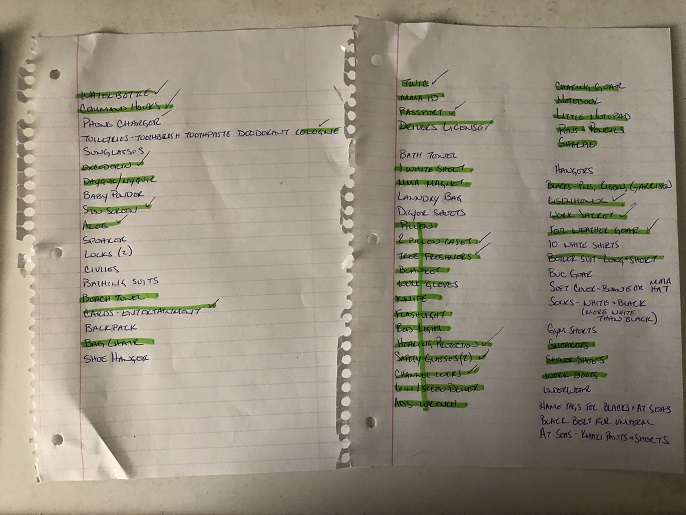 WATER BOTTLE
COMMAND HOOKS
PHONE CHARGER
TOILETRIES - TOOTHBRUSH TOOTHPASTE DEODORANT COLOGNE
SUNGLASSES
EXCEDRIN
DAYQUIL/NYQUIL
BABY POWDER
SUN SCREEN
ALOE
SPEAKER
LOCKS (2)
CIVILIES
BATHING SUITS
BEACH TOWEL
CARDS - ENTERTAINMENT
BACKPACK
BAG CHAIR
SHOE HANGER
TWIC
MMA ID
PASSPORT
DRIVERS LICENSE
BATH TOWEL
1 WHITE SHEET
MMA MAGNET
LAUNDRY BAG
DRYER SHEETS
PILLOW
2 PILLOW CASES
TREE FRESHENERS
BLANKET
WORK GLOVES
KNIFE
FLASHLIGHT
RED LIGHT
HEARING PROTECTION
SAFETY GLASSES (2)
CHANNEL LOCKS
SCREW DRIVER
WRENCH
GEAR
NOTEBOOK
LITTLE NOTEPAD
PENS + PENCILS
SHARPIE
HANGERS
BLACKS - PINS, RIBBON, (GARRISON)
EISENHOWER
WORK JACKET
FOUL WEATHER GEAR
10 WHITE SHIRTS
BOILER SUIT - LONG + SHORT
BUC GEAR
SOFT COVER - BLANK OR MMA HAT
SOCKS - WHITE + BLACK
(MORE WHITE
THAN BLACK)
GYM SHORTS
SNEAKERS
SHOWER SHOES
WORK BOOTS
UNDERWEAR
NAME TAGS FOR BLACKS + AT SEAS
BLACK BELT FOR UNIFORM
AT SEAS - KHAKI PANTS + SHORTS